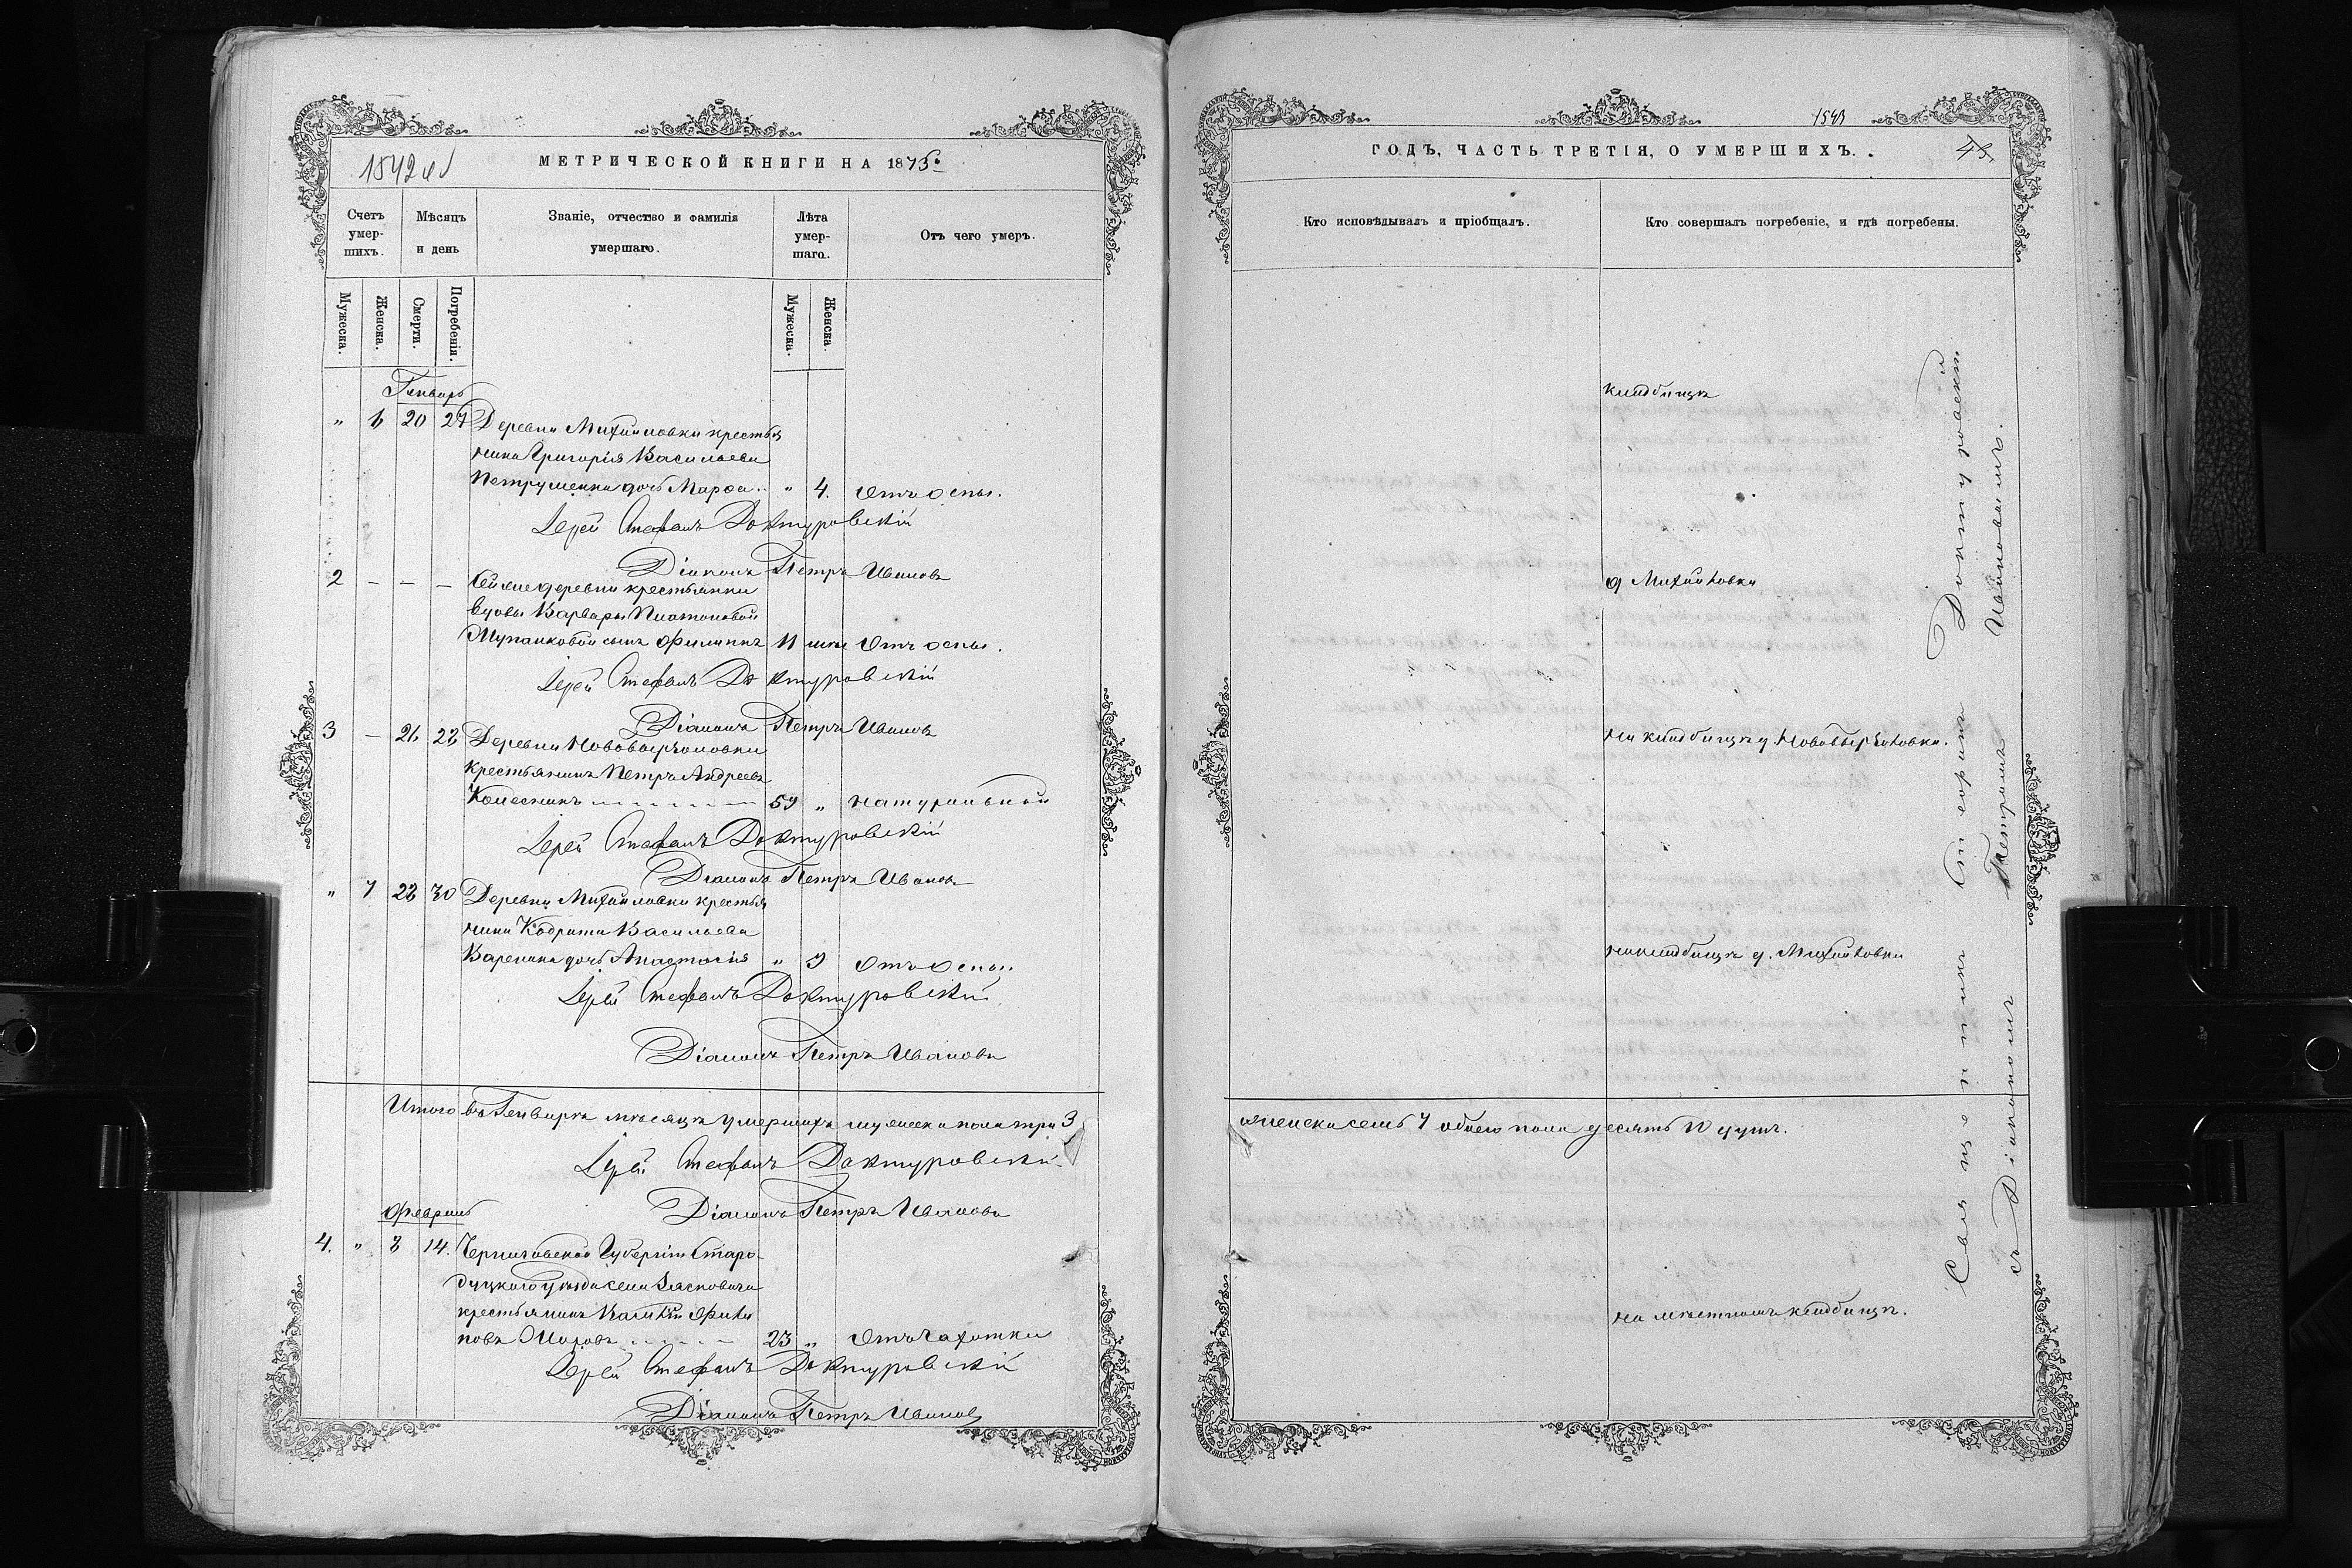 1842
МЕТРИЧЕСКОЙ КНИГИ НА 1875
Счетъ умер-шихъ.
Мѣсяцъ и день
Званіе, отчество и фамилія умершаго.
Лѣта умер-шаго.
Отъ чего умеръ.
Мужеска.
Женска.
Смерти.
Погребенія.
Мужеска.
Женска.
Генварь
" 6 20 27 Деревни Михайловки крестья
нина Григорія Васильева
Петрушенка дочь Марѳа " 4. Отъ оспы.
Іерей Стефанъ Доктуровскій
Діаконъ Петръ Ивановъ
2 – – – Той же деревни крестьянки
вдовы Варвары Платоновой
сынъ Филиппъ 11 Отъ оспы.
Іерей Стефанъ Доктуровскій
Діаконъ Петръ Ивановъ
3 – 26 28 Деревни
крестьянинъ Петръ Андреевъ
Колесникъ 59 " натуральной
Іерей Стефанъ Доктуровскій
Діаконъ Петръ Ивановъ
" 7 28 30 Деревни Михайловки крестья
нина Кодрата Васильева
дочь Анастасія " 9 Отъ оспы
Іерей Стефанъ Доктуровскій
Діаконъ Петръ Ивановъ
Итого въ Генварѣ мѣсяцѣ умершихъ мужеска пола три 3
Іерей Стефанъ Доктуровскій
Діаконъ Петръ Ивановъ
Февраль
4. " 8 14. Черниговской Губерніи Старо-
дубскаго уѣзда села
крестьянинъ
23 " Отъ чахотки
Іерей Стефанъ Доктуровскій
Діаконъ Петръ Ивановъ
1543
ГОДЪ, ЧАСТЬ ТРЕТІЯ, О УМЕРШИХЪ.
43.
Кто исповѣдывалъ и пріобщалъ.
Кто совершалъ погребеніе, и гдѣ погребены.
кладбищѣ
д Михайловки
на кладбищѣ д.
на кладбищѣ д. Михайловки
женска семь 7 обоего пола десять 10 душъ.
на мѣстномъ кладбищѣ.
Священникъ Стефанъ Доктуровскій
съ Діакономъ Петромъ Ивановымъ.